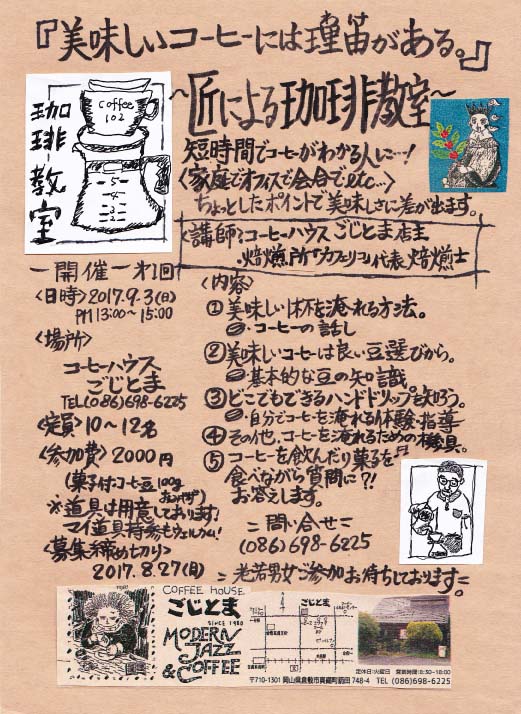 『美味しいコーヒーには理由がある。』
～匠による珈琲教室～
珈琲教室
coffee
102
短時間でコーヒーがわかる人に…!
〈家庭でオフィスで会合でetc…〉
ちょっとしたポイントで美味しさに差が出ます。
〈講師〉コーヒーハウス ごじとま店主
・焙煎所 代表 焙煎士
ー開催ー 第1回
〈日時〉2017.9.3(日)
PM 13:00～15:00
〈場所〉
コーヒーハウス
ごじとま
TEL(086)698-6225
〈定員〉10～12名
〈参加費〉2000円
(菓子付コーヒー豆100g
おみやげ)
※道具は用意しております!
マイ道具持参もウェルカム!
〈募集締め切り〉
2017.8.27(日)
〈内容〉
①美味しい1杯を淹れる方法。
・コーヒーの話し
②美味しいコーヒーは良い豆選びから。
・基本的な豆の知識。
③どこでもできるハンドドリップを知ろう。
・自分でコーヒーを淹れる体験・指導
④その他、コーヒーを淹れるための機具。
⑤コーヒーを飲んだり菓子を
食べながら質問に?!
お答えします。
＝問い合せ＝
(086)698-6225
＝老若男女ご参加お待ちしております＝
COFFEE HOUSE
ごじとま
SINCE 1980
MODERN
JAZZ
& COFFEE
ごじとま
定休日:火曜日 営業時間:8:30-18:00
〒710-1301 岡山県倉敷市真備町箭田 748-4 TEL (086)698-6225